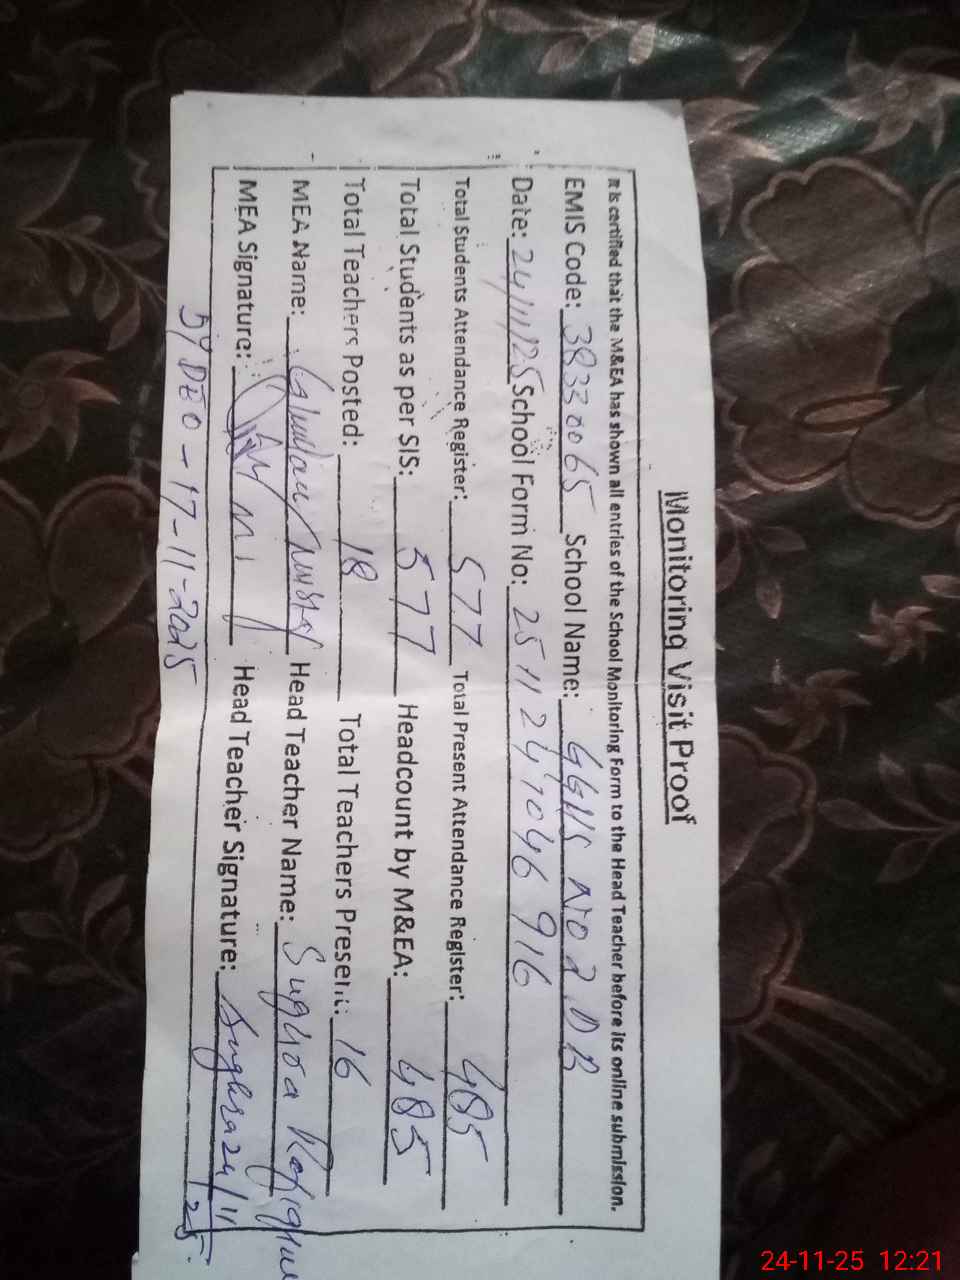 Monitoring Visit Proof
It is certified that the M&EA has shown all entries of the School Monitoring Form to the Head Teacher before its online submission.
EMIS Code: 38330065 School Name: GGHS No 2 DB
Date: 24/11/25 School Form No: 2511247046916
Total Students Attendance Register: 577 Total Present Attendance Register: 485
Total Students as per SIS: 577 Headcount by M&EA: 485
Total Teachers Posted: 18 Total Teachers Present: 16
MEA Name: Head Teacher Name: Sughra
MEA Signature: Head Teacher Signature: Sughra 24/11/25
DY DEO - 17-11-2025
24-11-25 12:21